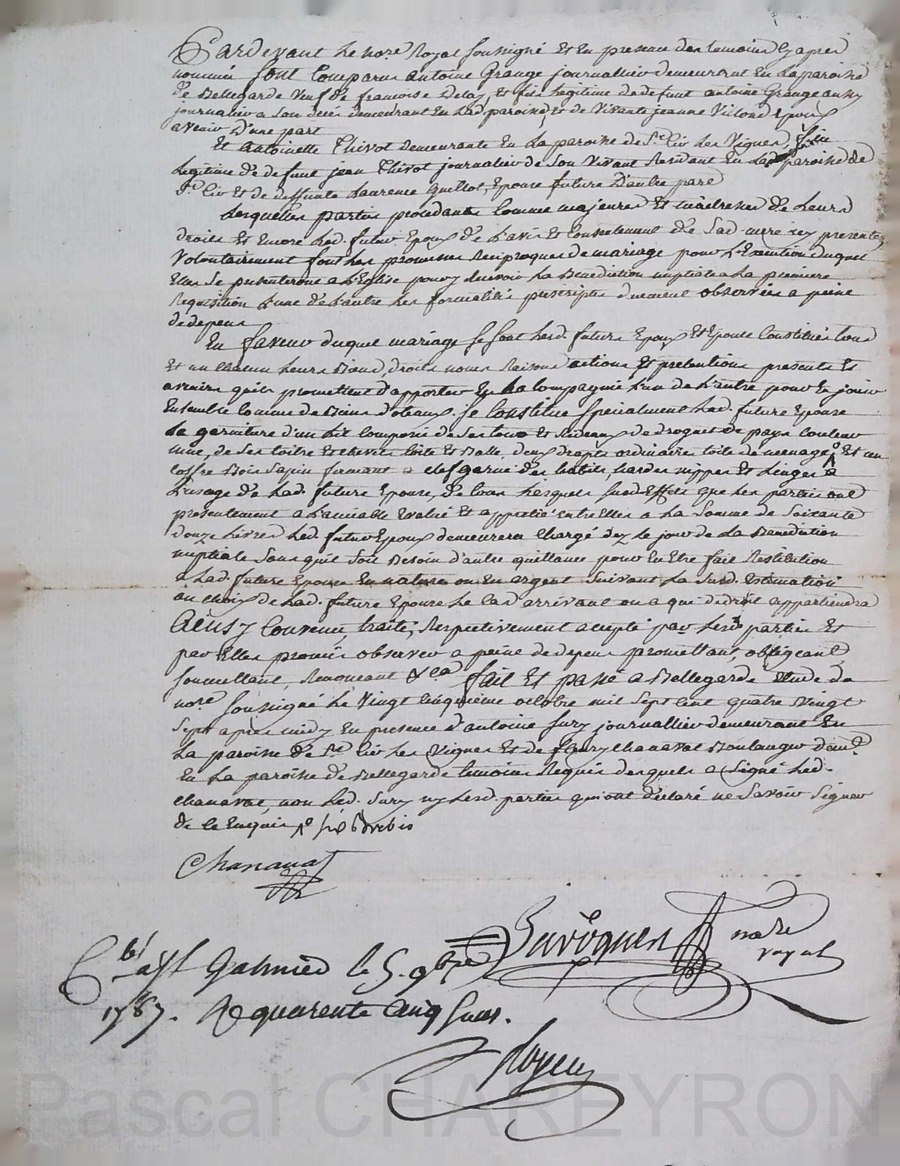 Pardevant Le nore. Royal soussigné Et En presence des temoins cy apres
nommés sont Comparus antoine Grange journallier demeurant En La paroisse
de Bellegarde veuf de francoise Delay Et fils Legitime de defunt antoine Grange aussy
journallier a son deces demeurant En lad. paroisse et de vivante jeanne Epoux
avenir D'une part
Et antoinette Thivot demeurante En La paroisse de St. Cir Les Vignes, fille
Legitime de defunt jean Thivot journalier de son vivant Residant En lad. paroisse de
St. Cir Et de deffunte Laurence Guillot, Epouse future D'autre part
Lesquelles parties procedantes Comme majeures Et maitresses de Leurs
droits Et Encore Led. futur Epoux de L'avis Et Consentement de Sad. mere icy presente
Volontairement font Les promesses Reciproques de mariage pour L'Execution duquel
Elles Se presenteront a L'Eglise pour y Recevoir La Benediction nuptiale a La premiere
Requisition L'une de L'autre Les formalités prescriptes d'ument observées a peine
de depens
En faveur duquel mariage se sont Lesd. futurs Epoux Et Epouse Constitués tous
Et un chacun Leurs Biens, droits noms Raisons actions Et pretentions presents Et
avenirs qu'ils promettent d'apporter En La Compagnie L'un de L'autre pour En jouir
Ensemble Comme de Biens dotaux. se Constitue specialement Lad. future Epouse
La garniture d'un Lit Composé de ses tours Et Rideaux de droguet de pays Couleur
de son Coitre Et chevet toile Et Balle, deux draps ordinaires toile de menage, Et un
Coffre Bois Sapin fermant a clef garni des habits, hardes nippes Et Linges a
L'usage de Lad. future Epouse, de tous Lesquels susd. Effets que Les parties ont
presentement a L'amiable Evalué Et apprétié entr'Elles a La Somme de Soixante
douze Livres Led. futur Epoux demeurera Chargé dez Le jour de La Benediction
nuptiale Sans qu'il Soit Besoin d'autre quittance pour En Etre fait Restitution
a Lad. future Epouse En nature ou En argent Suivant La Susd. Estimation
au choix de Lad. future Epouse Le Cas arrivant ou a qui de droit appartiendra
Ainsy Convenu, traité, Respectivement accepté par Lesd. parties Et
par Elles promis observer a peine de depens promettant, obligeant,
soumettant, Renonceant &ca. fait Et passé a Bellegarde Etude du
nore. soussigné Le Vingt Cinquieme octobre mil Sept Cent quatre Vingt
Sept apres midy En presence d'antoine Sury journallier demeurant En
La paroisse de St. Cir Les Vignes Et de fleury Chanavat Boulanger demt.
En La paroisse de Bellegarde temoins Requis desquels a Signé Led.
Chanavat, non Led. Sury ny Lesd. parties qui ont declaré ne Savoir Signer
de Ce Enquis
Chanavat
nore
royal
Galmier le 5. 9bre
1787. R quarente Cinq sous.
Pascal CHAREYRON